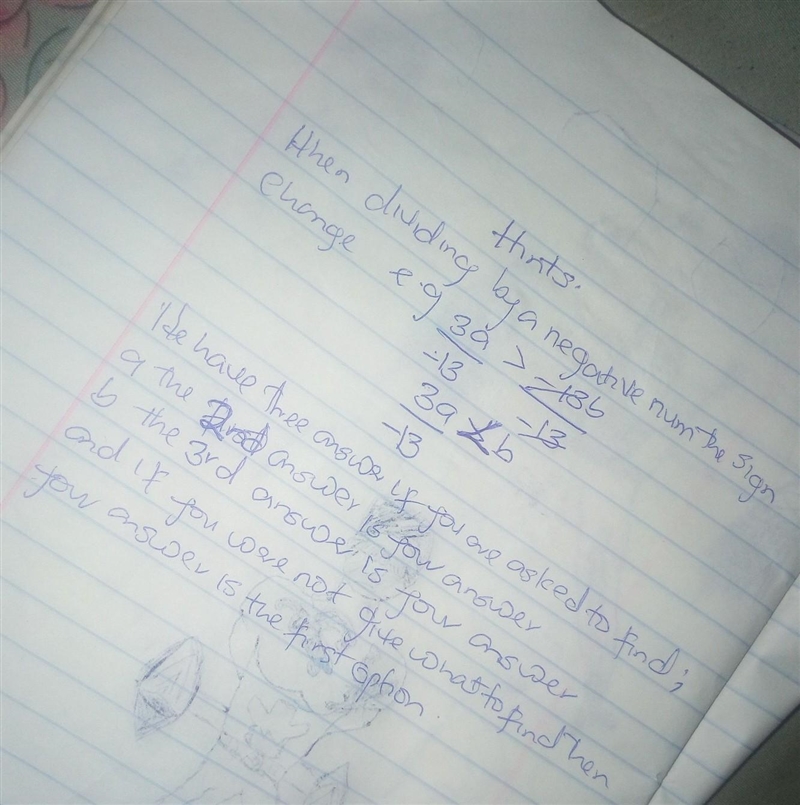 Hints.
When dividing by a negative num the sign
change e.g 3a/-13 > -13b/-13
3a/-13 < b
We have three answer if you are asked to find;
a the 2nd answer is your answer
b the 3rd answer is your answer
and if you were not give what to find then
your answer is the first option.